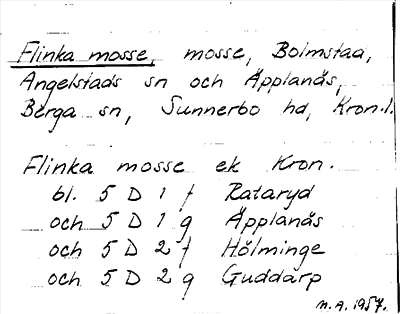 Flinka mosse, mosse, Bolmstad,
Angelstads sn och Äpplanäs,
Berga sn, Sunnerbo hd, Kron.l.
Flinka mosse ek Kron.
bl. 5 D 1 f Rataryd
och 5 D 1 g Äpplanäs
och 5 D 2 f Hölminge
och 5 D 2 g Guddarp
M.A. 1957.